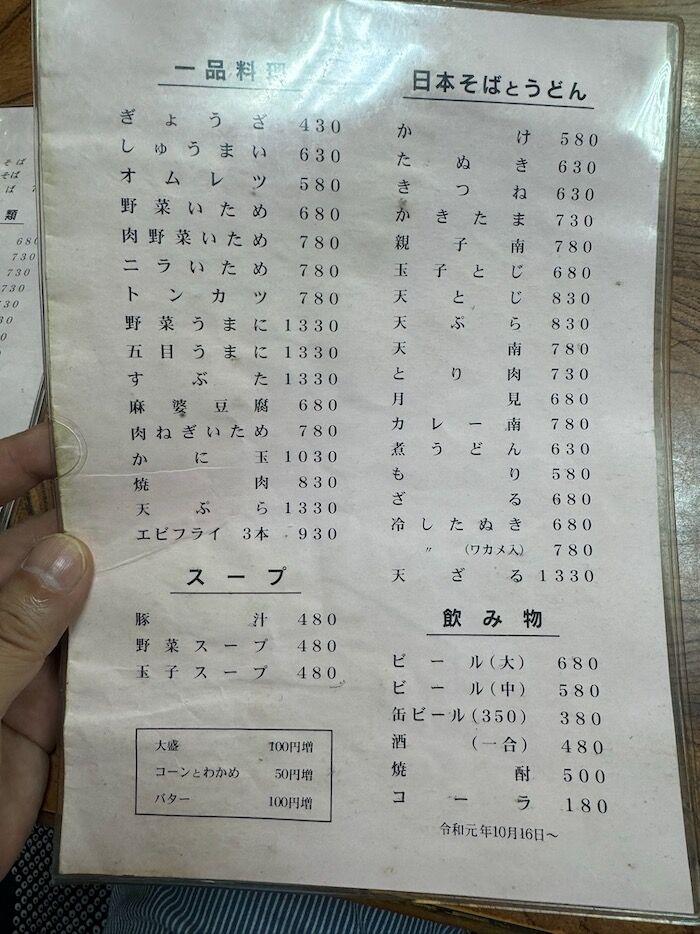 一品料理
ぎょうざ 430
しゅうまい 630
オムレツ 580
野菜いため 680
肉野菜いため 780
ニラいため 780
トンカツ 780
野菜うまに 1330
五目うまに 1330
すぶた 1330
麻婆豆腐 680
肉ねぎいため 780
かに玉 1030
焼肉 830
天ぷら 1330
エビフライ 3本 930
スープ
豚汁 480
野菜スープ 480
玉子スープ 480
大盛 100円増
コーンとわかめ 50円増
バター 100円増
日本そばとうどん
かけ 580
たぬき 630
きつね 630
かきたま 730
親子南 780
玉子とじ 680
天とじ 830
天ぷら 830
天南 780
とり肉 730
月見 680
カレー南 780
煮うどん 630
もり 580
ざる 680
冷したぬき 680
〃 (ワカメ入) 780
天ざる 1330
飲み物
ビール(大) 680
ビール(中) 580
缶ビール(350) 380
酒 (一合) 480
焼酎 500
コーラ 180
令和元年10月16日〜
そば
そば
ば 7
類
680
730
730
730